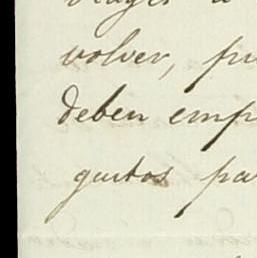 volver, pu
deben emp
gastos pa